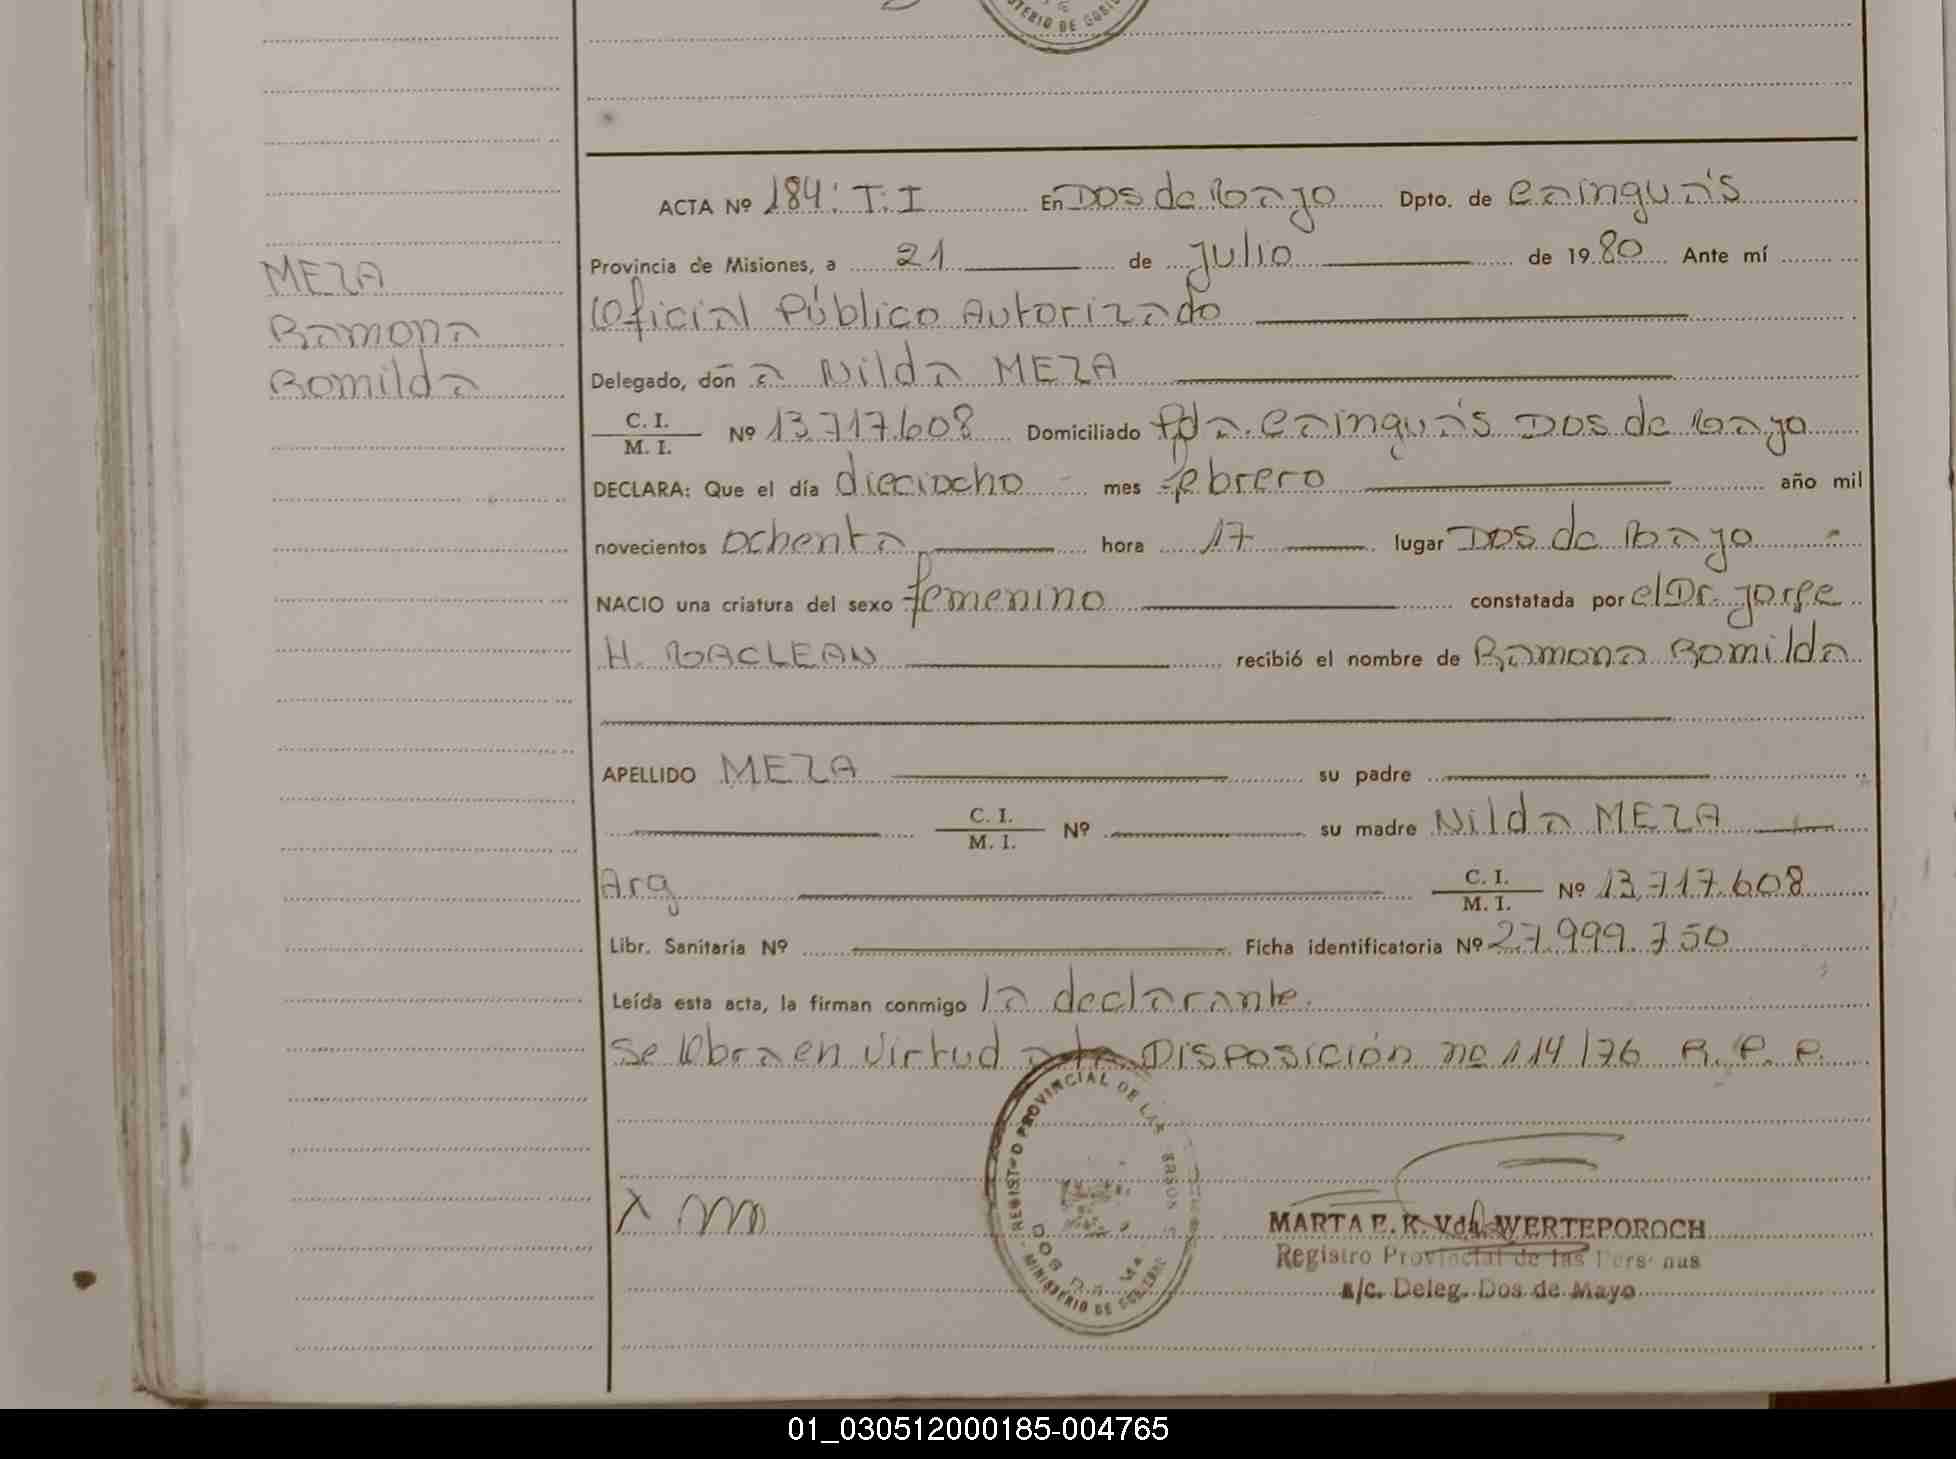 MINISTERIO DE GOBI
ACTA Nº 184: T: I En DOS de Mayo Dpto. de Cainguás
Provincia de Misiones, a 21 de julio de 1980 Ante mí
Oficial Público Autorizado
Delegado, doña Nilda MEZA
C. I.
M. I. Nº 13.717.608 Domiciliado Pda. Cainguás DOS de Mayo
DECLARA: Que el día dieciocho mes febrero año mil
novecientos ochenta hora 17 lugar DOS de Mayo
NACIO una criatura del sexo femenino constatada por el Dr. Jorge
H. MACLEAN recibió el nombre de Ramona Romilda
APELLIDO MEZA su padre
C. I.
M. I. Nº su madre Nilda MEZA
Arg C. I.
M. I. Nº 13.717.608
Libr. Sanitaria Nº Ficha identificatoria Nº 27.999.750
Leída esta acta, la firman conmigo la declarante.
Se labra en virtud a la Disposición nº 114/76 R. P. P.
MEZA
Ramona
Romilda
REGISTRO PROVINCIAL DE LAS PERSONAS
DOS DE MA
MINISTERIO DE GOBIERNO
X
MARTA E. K. Vda. WERTEPOROCH
Registro Provincial de las Personas
a/c. Deleg. Dos de Mayo
01_030512000185-004765